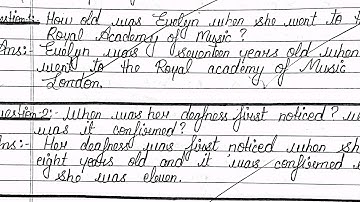 Question-1: How old was Evelyn when she went to t
Royal Academy of Music?
Ans:- Evelyn was seventeen years old when
went to the Royal academy of Music
London.
Question-2:- When was her deafness first noticed?
was it confirmed?
Ans:- Her deafness was first noticed when sh
eight years old and it was confirmed
she was eleven.